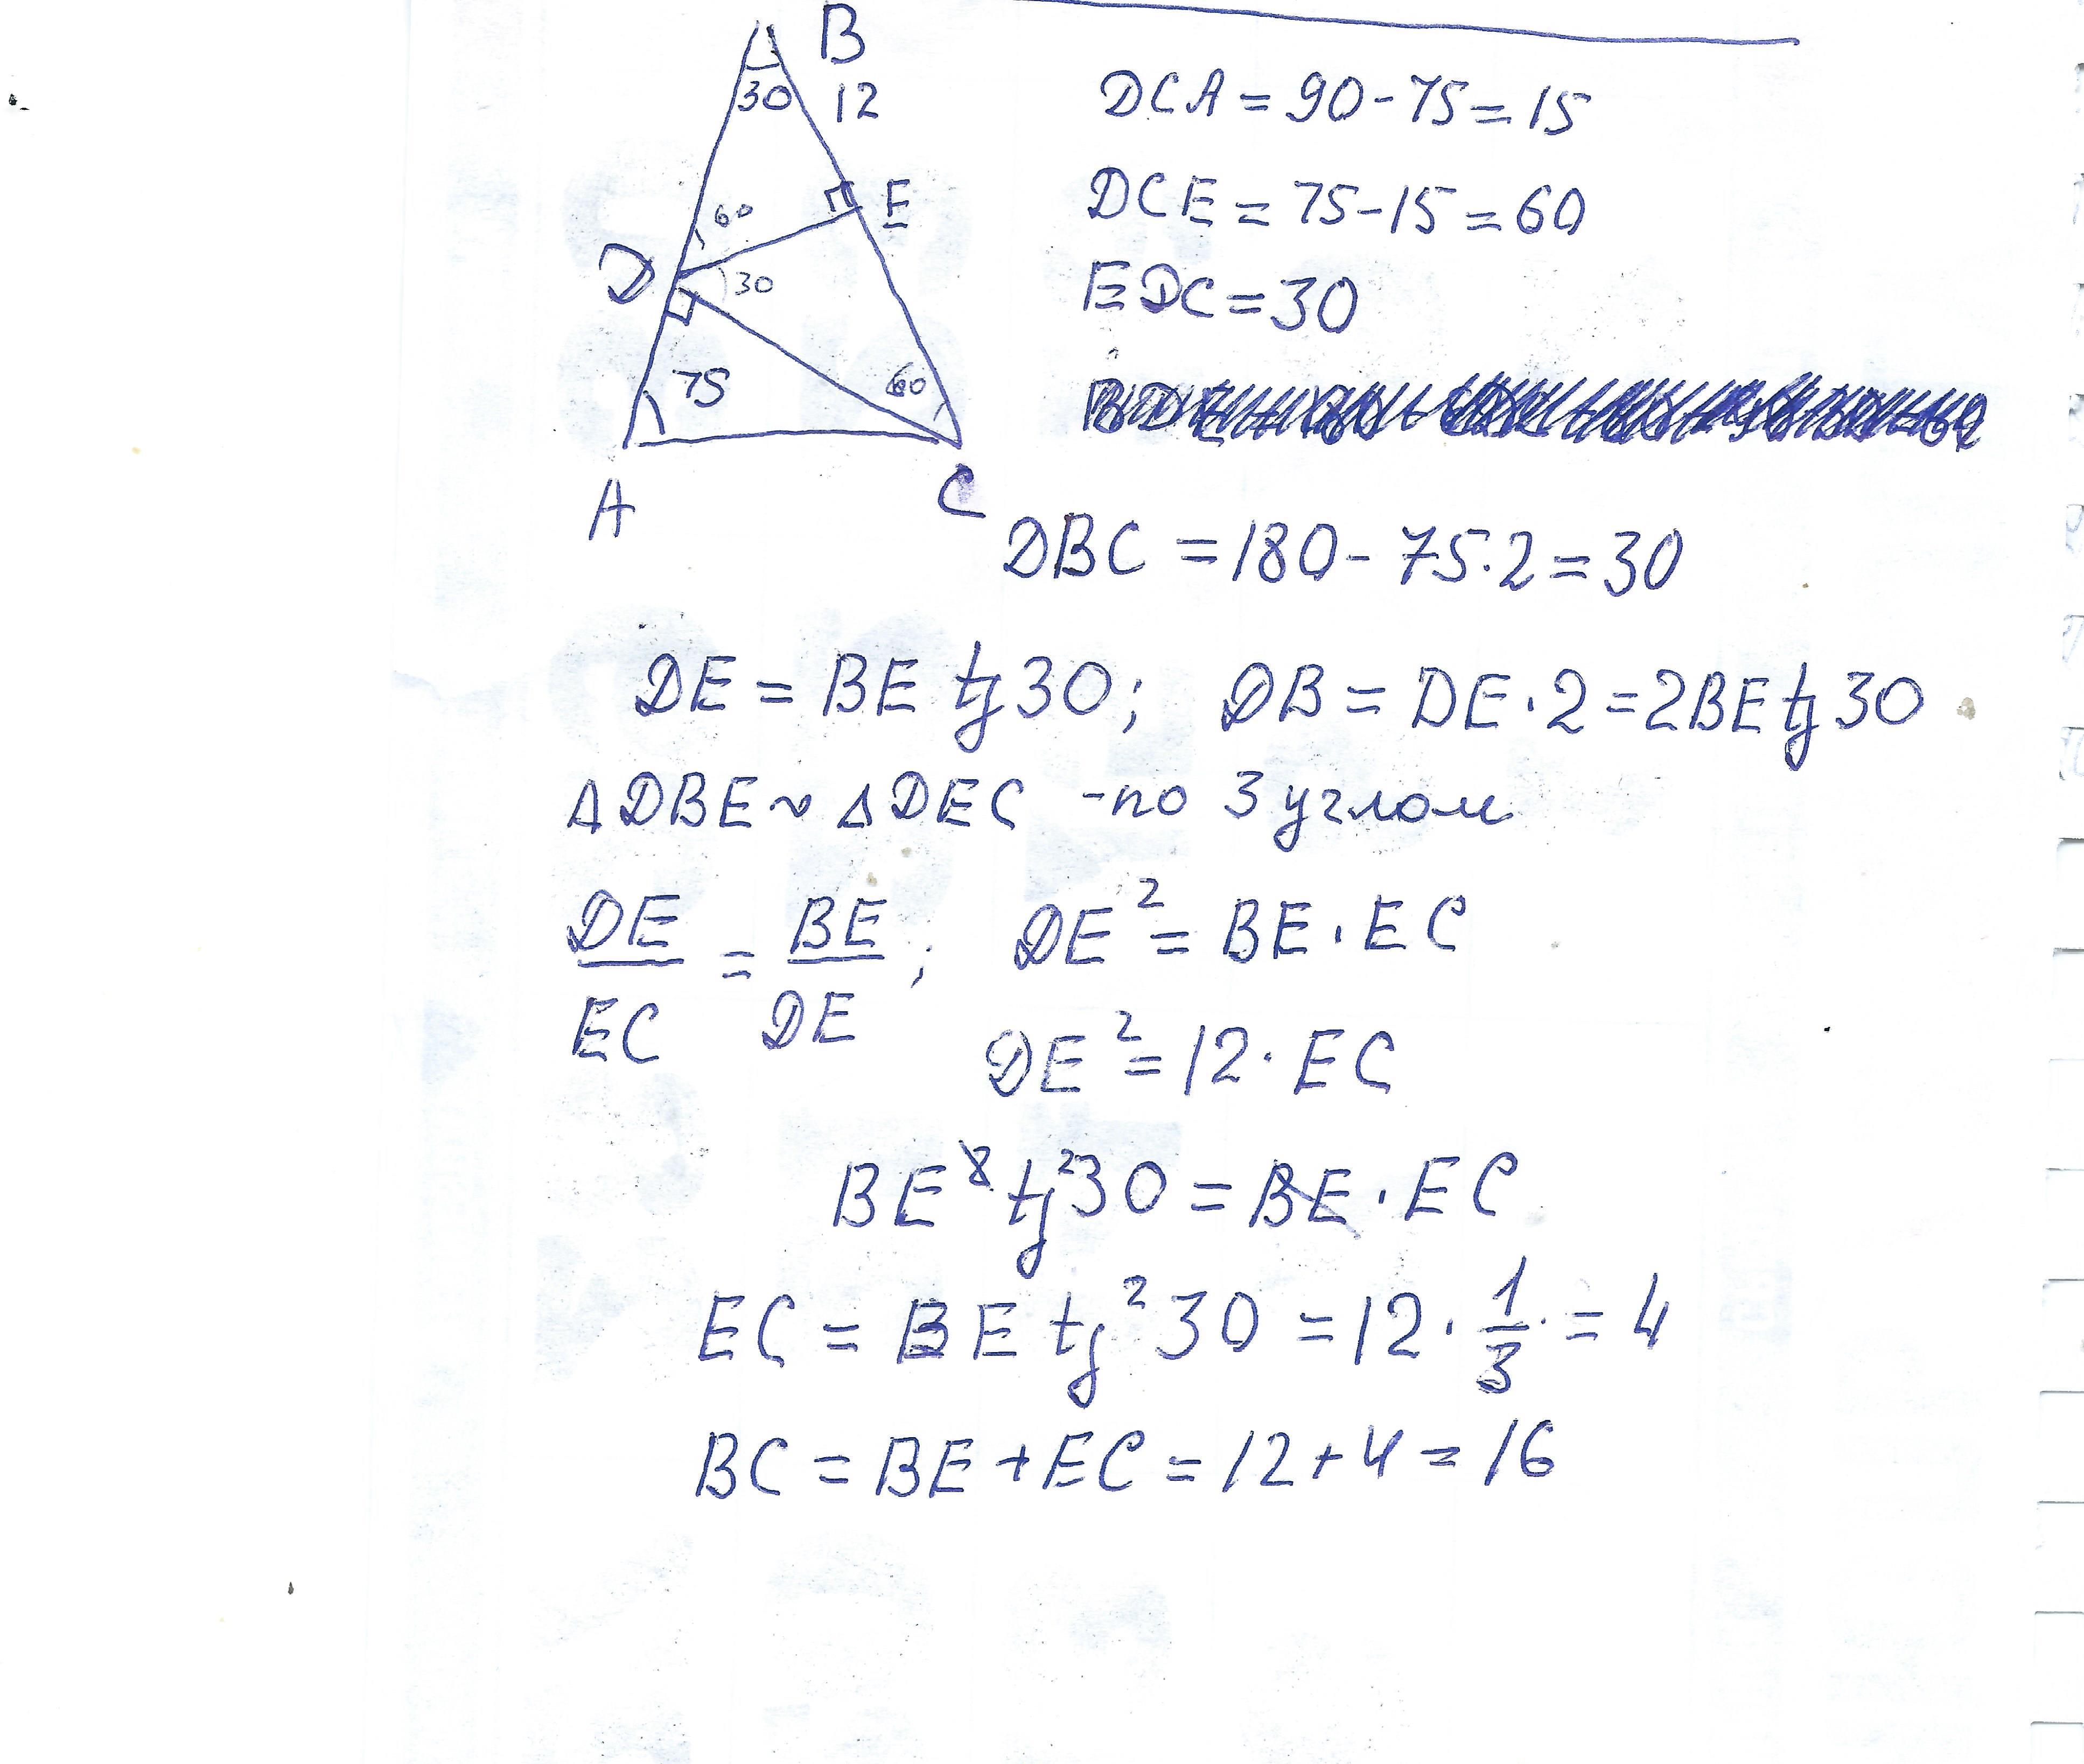 B
30
12
60
E
D
30
75
60
A
C
DCA = 90 - 75 = 15
DCE = 75 - 15 = 60
EDC = 30
DBC = 180 - 75 · 2 = 30
DE = BE tg 30; DB = DE · 2 = 2BE tg 30
Δ DBE ~ Δ DEC - по 3 углом
DE/EC = BE/DE; DE² = BE · EC
DE² = 12 · EC
BE² tg²30 = BE · EC
EC = BE tg² 30 = 12 · 1/3 = 4
BC = BE + EC = 12 + 4 = 16